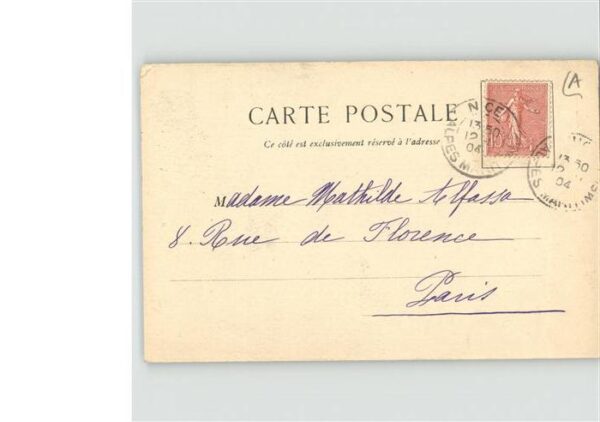 A
CARTE POSTALE
Ce côté est exclusivement réservé à l'adresse
NICE
13 50
04
ALPES M
10
13 50
04
Madame Mathilde Alfassa
8. Rue de Florence
Paris